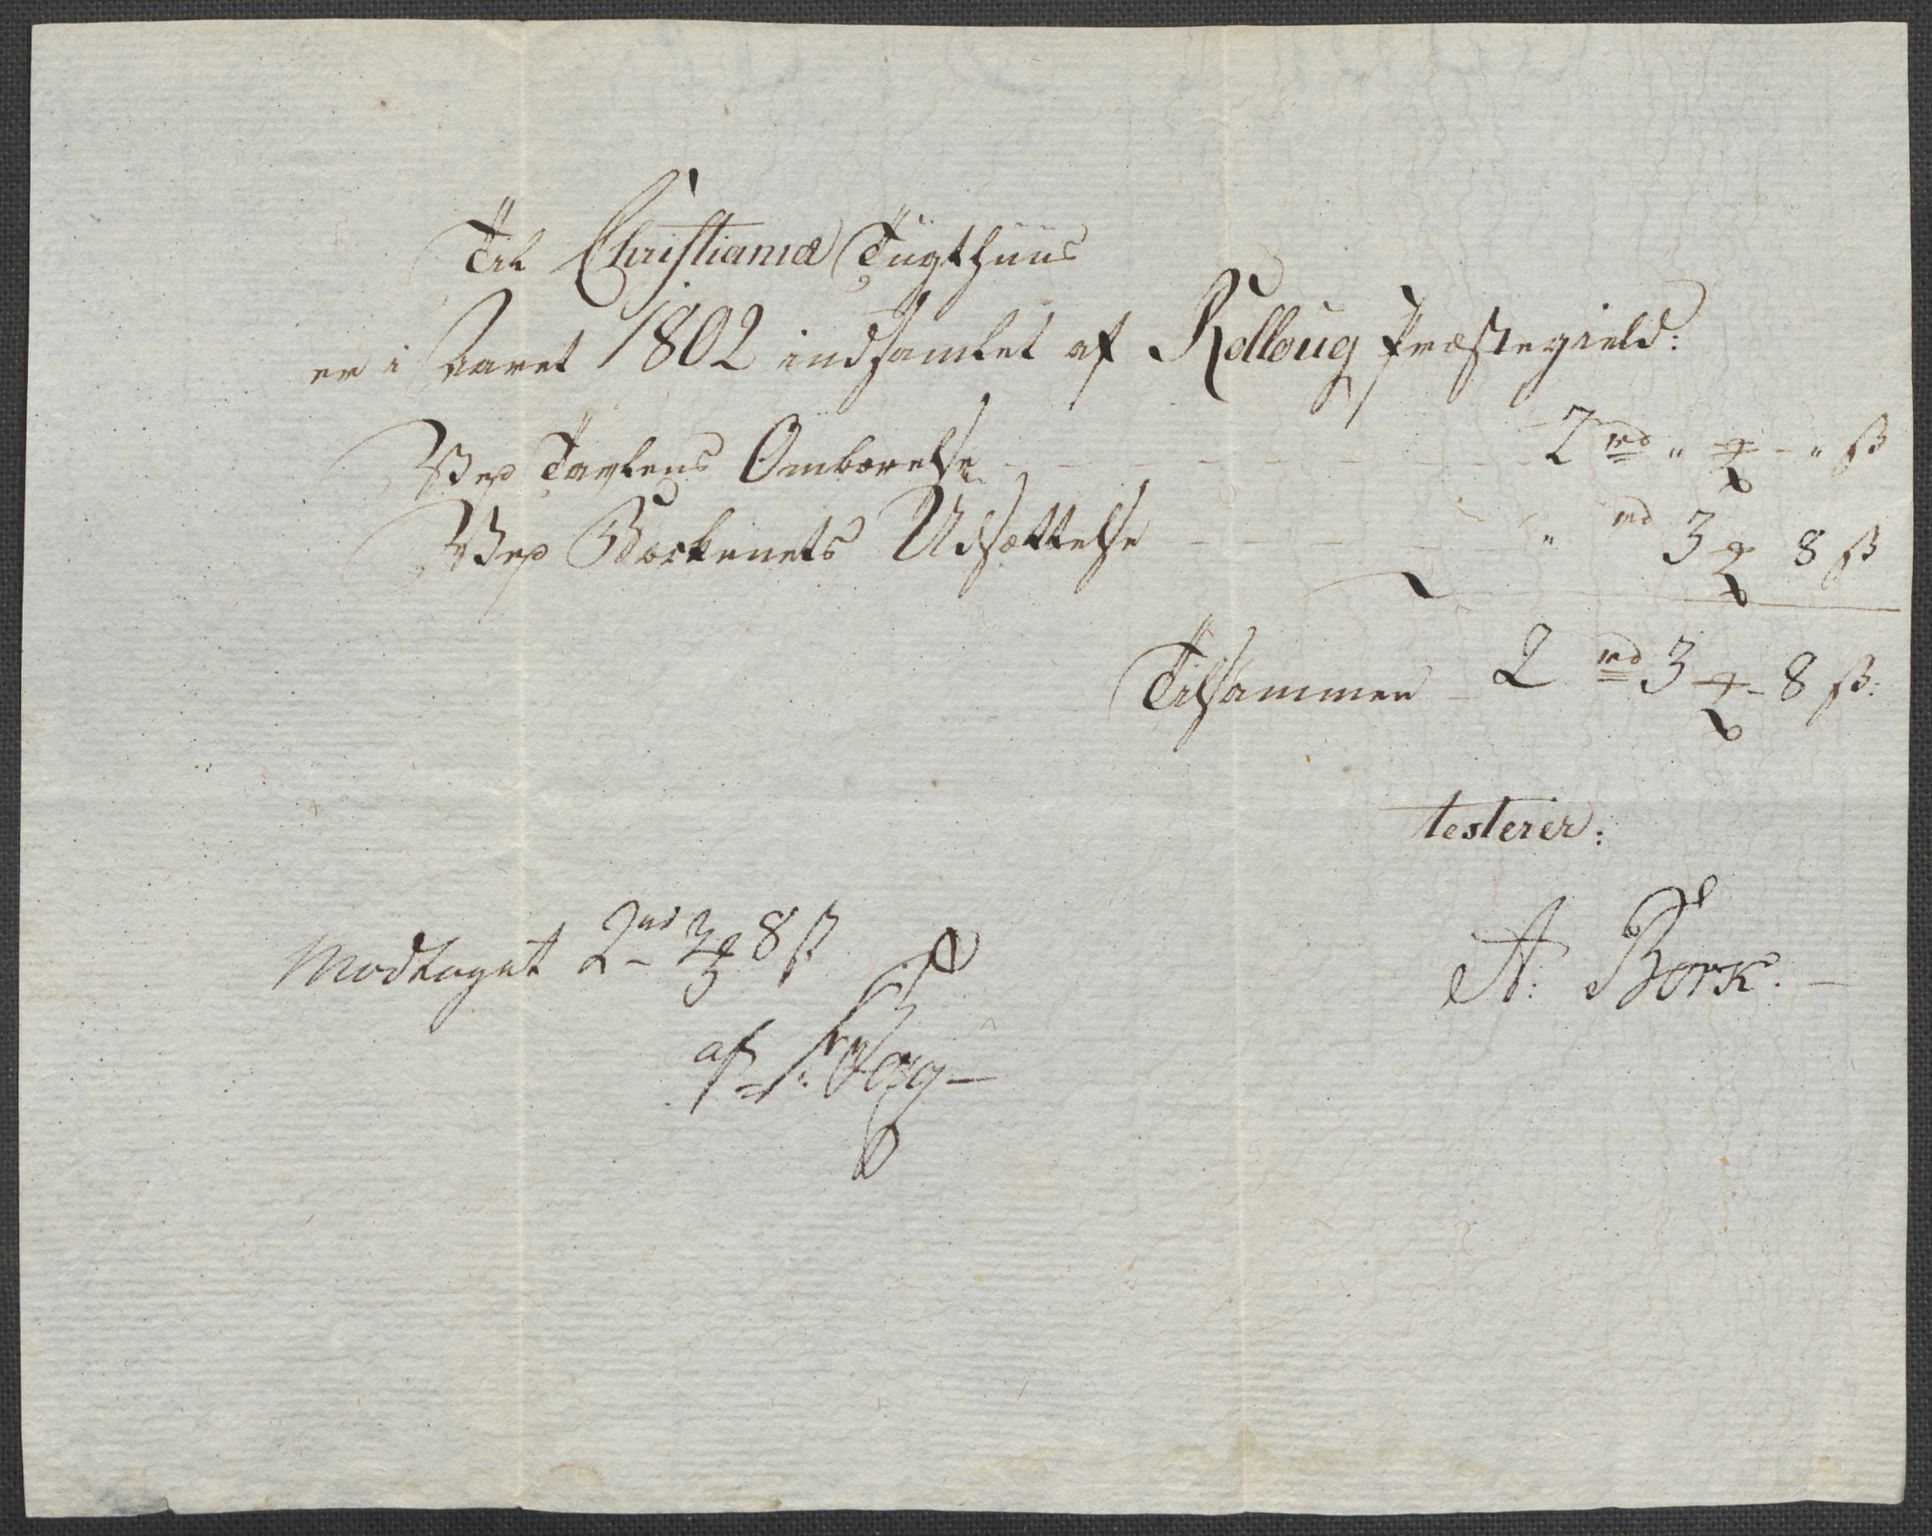 Til Christianiæ Tügthuus
er i Aaret 1802 indsamlet af Rolloug Præstegield:
Ved Tavlens Ombærelse - - - 2 rd " ꝝ - " ß
Ved Beckenets Udsættelse - - - " rd 3 ꝝ 8 ß
Tilsammen - 2 rd 3 ꝝ - 8 ß:
testerer:
A: Bork. -
Modtaget 2 rd 3 ꝝ 8 ß
af